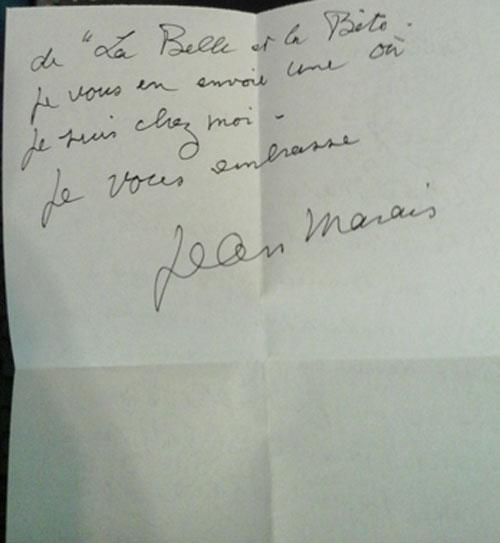 de "La Belle et la Bête.
Je vous en envoie une où
Je suis chez moi -
Je vous embrasse
Jean Marais